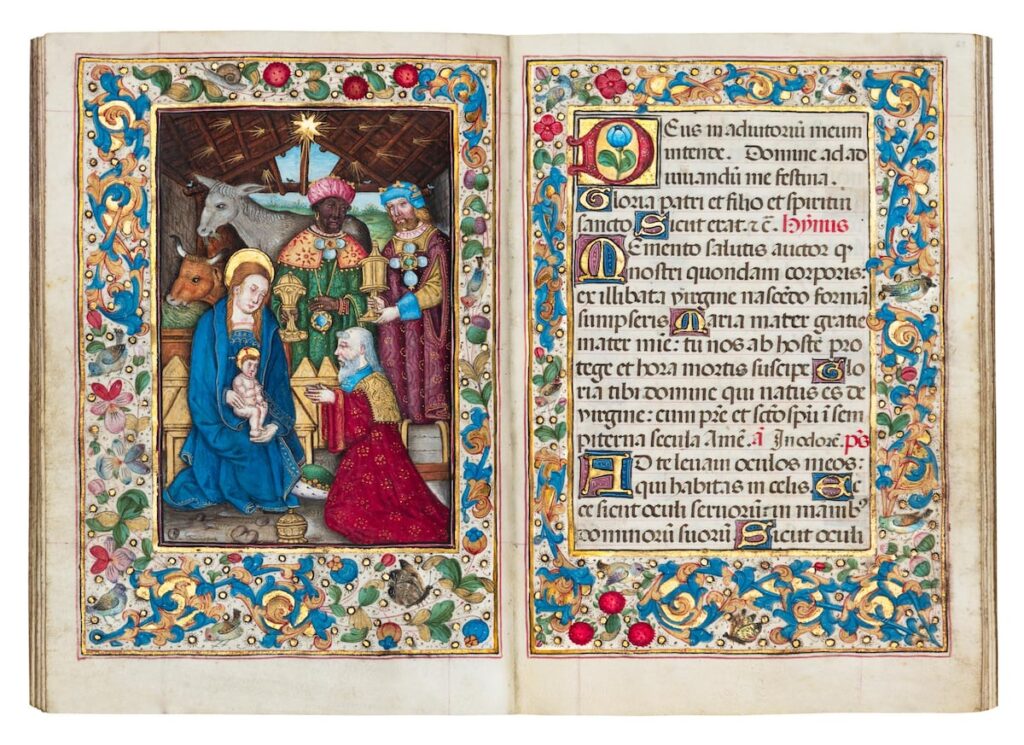 Deus in adiutoriū meum
intende. Domine ad ad
iuuandū me festina.
Gloria patri et filio et spiritui
sancto Sicut erat. ⁊ c̄. hẏnus
Memento salutis auctor q̇
nostri quondam corporis:
ex illibata ẏirgine nascēdo formā
sumpseris Maria mater gratie
mater mie: tu nos ab hoste pro
tege et hora mortis suscipe Glo
ria tibi domine qui natus es de
ẏirgine: cum pr̄e et sc̄to sp̄u ī sem
piterna secula Amē. ā In odorē. p̄s
Ad te leuaui oculos meos:
qui habitas in celis. Ec
ce sicut oculi seruorū: in manibꝰ
dominorū suorū Sicut oculi